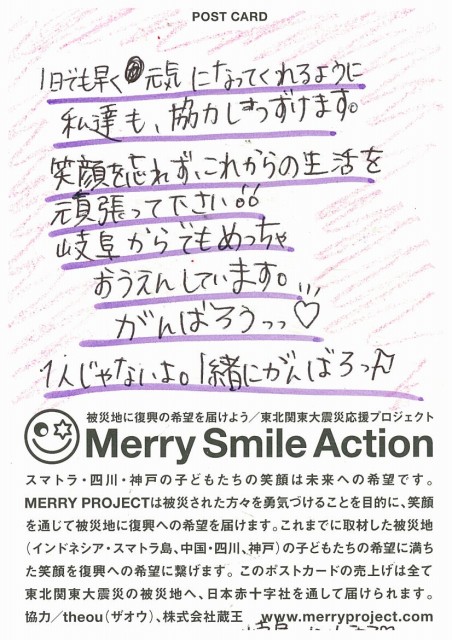 POST CARD
1日でも早く元気になってくれるように
私達も、協力しつづけます。
笑顔を忘れず、これからの生活を
頑張って下さい!!
岐阜からでもめっちゃ
おうえんしています。...
がんばろうっっ♡
1人じゃないよ。1緒にがんばろっ♪
被災地に復興の希望を届けよう／東北関東大震災応援プロジェクト
Merry Smile Action
スマトラ・四川・神戸の子どもたちの笑顔は未来への希望です。
MERRY PROJECTは被災された方々を勇気づけることを目的に、笑顔
を通じて被災地に復興への希望を届けます。これまでに取材した被災地
（インドネシア・スマトラ島、中国・四川、神戸）の子どもたちの希望に満ち
た笑顔を復興への希望に繋げます。このポストカードの売上げは全て
東北関東大震災の被災地へ、日本赤十字社を通して届けられます。
協力／theou（ザオウ）、株式会社蔵王　www.merryproject.com